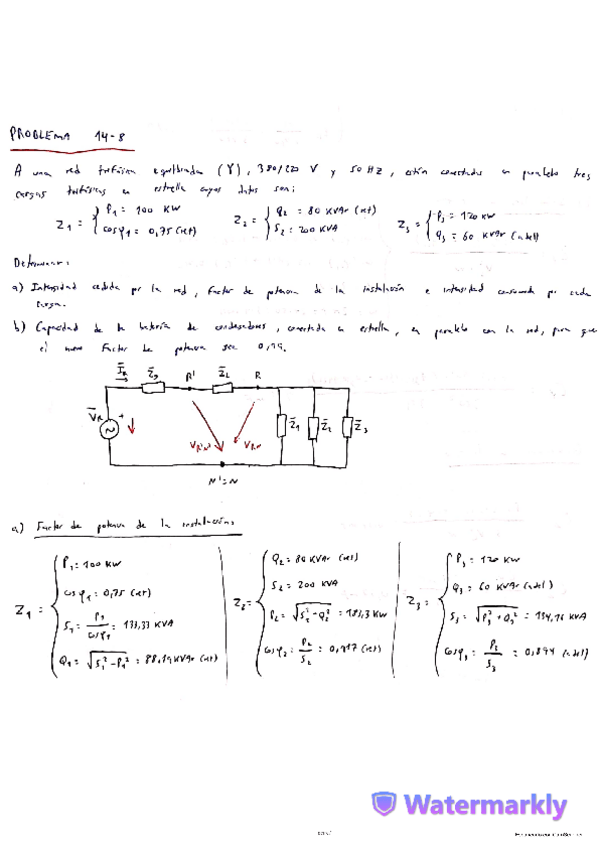 PROBLEMA 14-8
A una red trifásica equilibrada (Y), 380/220 V y 50 Hz, están conectadas en paralelo tres
cargas trifásicas en estrella cuyos datos son:
Z1 = { P1 = 100 KW
cosφ1 = 0,75 (ret)
Z2 = { Q2 = 80 KVAr (ret)
S2 = 200 KVA
Z3 = { P3 = 120 KW
Q3 = 60 KVAr (adel)
Determinar:
a) Intensidad cedida por la red, factor de potencia de la instalación e intensidad consumida por cada
carga.
b) Capacidad de la batería de condensadores, conectada en estrella, en paralelo con la red, para que
el nuevo factor de potencia sea 0,99.
R' Z̄L R
V̄R + Z̄1 Z̄2 Z̄3
VR'N' VRN
N'=N
a) Factor de potencia de la instalación:
Z1 = { P1 = 100 KW
cosφ1 = 0,75 (ret)
S1 = P1/cosφ1 = 133,33 KVA
Q1 = √(S1²-P1²) = 88,19 KVAr (ret)
Z2 = { Q2 = 80 KVAr (ret)
S2 = 200 KVA
P2 = √(S2²-Q2²) = 183,3 KW
cosφ2 = P2/S2 = 0,917 (ret)
Z3 = { P3 = 120 KW
Q3 = 60 KVAr (adel)
S3 = √(P3²+Q3²) = 134,16 KVA
S3 = 0,894 (adel)
Watermarkly